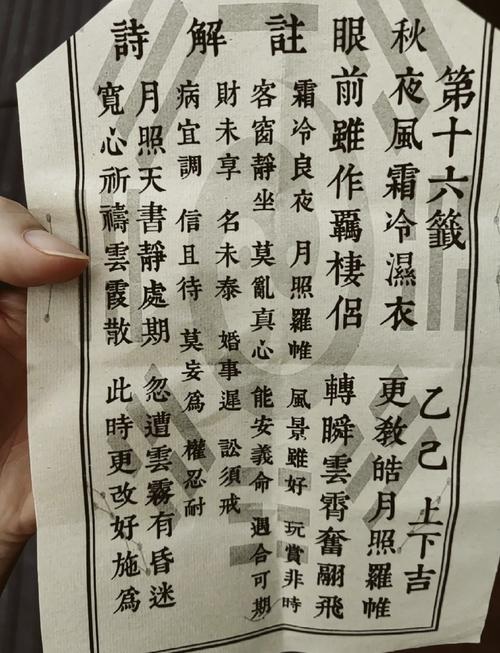 第十六籤 乙己 上下吉
秋夜風霜冷濕衣 更敎皓月照羅帷
眼前雖作羈棲侶 轉瞬雲霄奮翮飛
註
霜冷良夜 月照羅帷 風景雖好 玩賞非時
客窗靜坐 莫亂真心 能安義命 遇合可期
解
財未享 名未泰 婚事遲 訟須戒
病宜調 信且待 莫妄爲 權忍耐
詩
月照天書靜處期 忽遭雲霧有昏迷
寬心祈禱雲霞散 此時更改好施爲